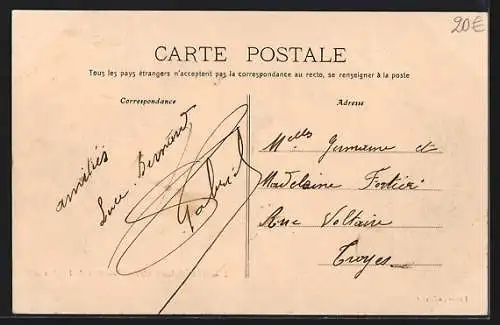 20€
CARTE POSTALE
Tous les pays étrangers n'acceptent pas la correspondance au recto, se renseigner à la poste
Correspondance
Adresse
amitiés
Luce Bernard
Gabriel
Melles Germaine et
Madeleine Fortier
Rue Voltaire
Troyes